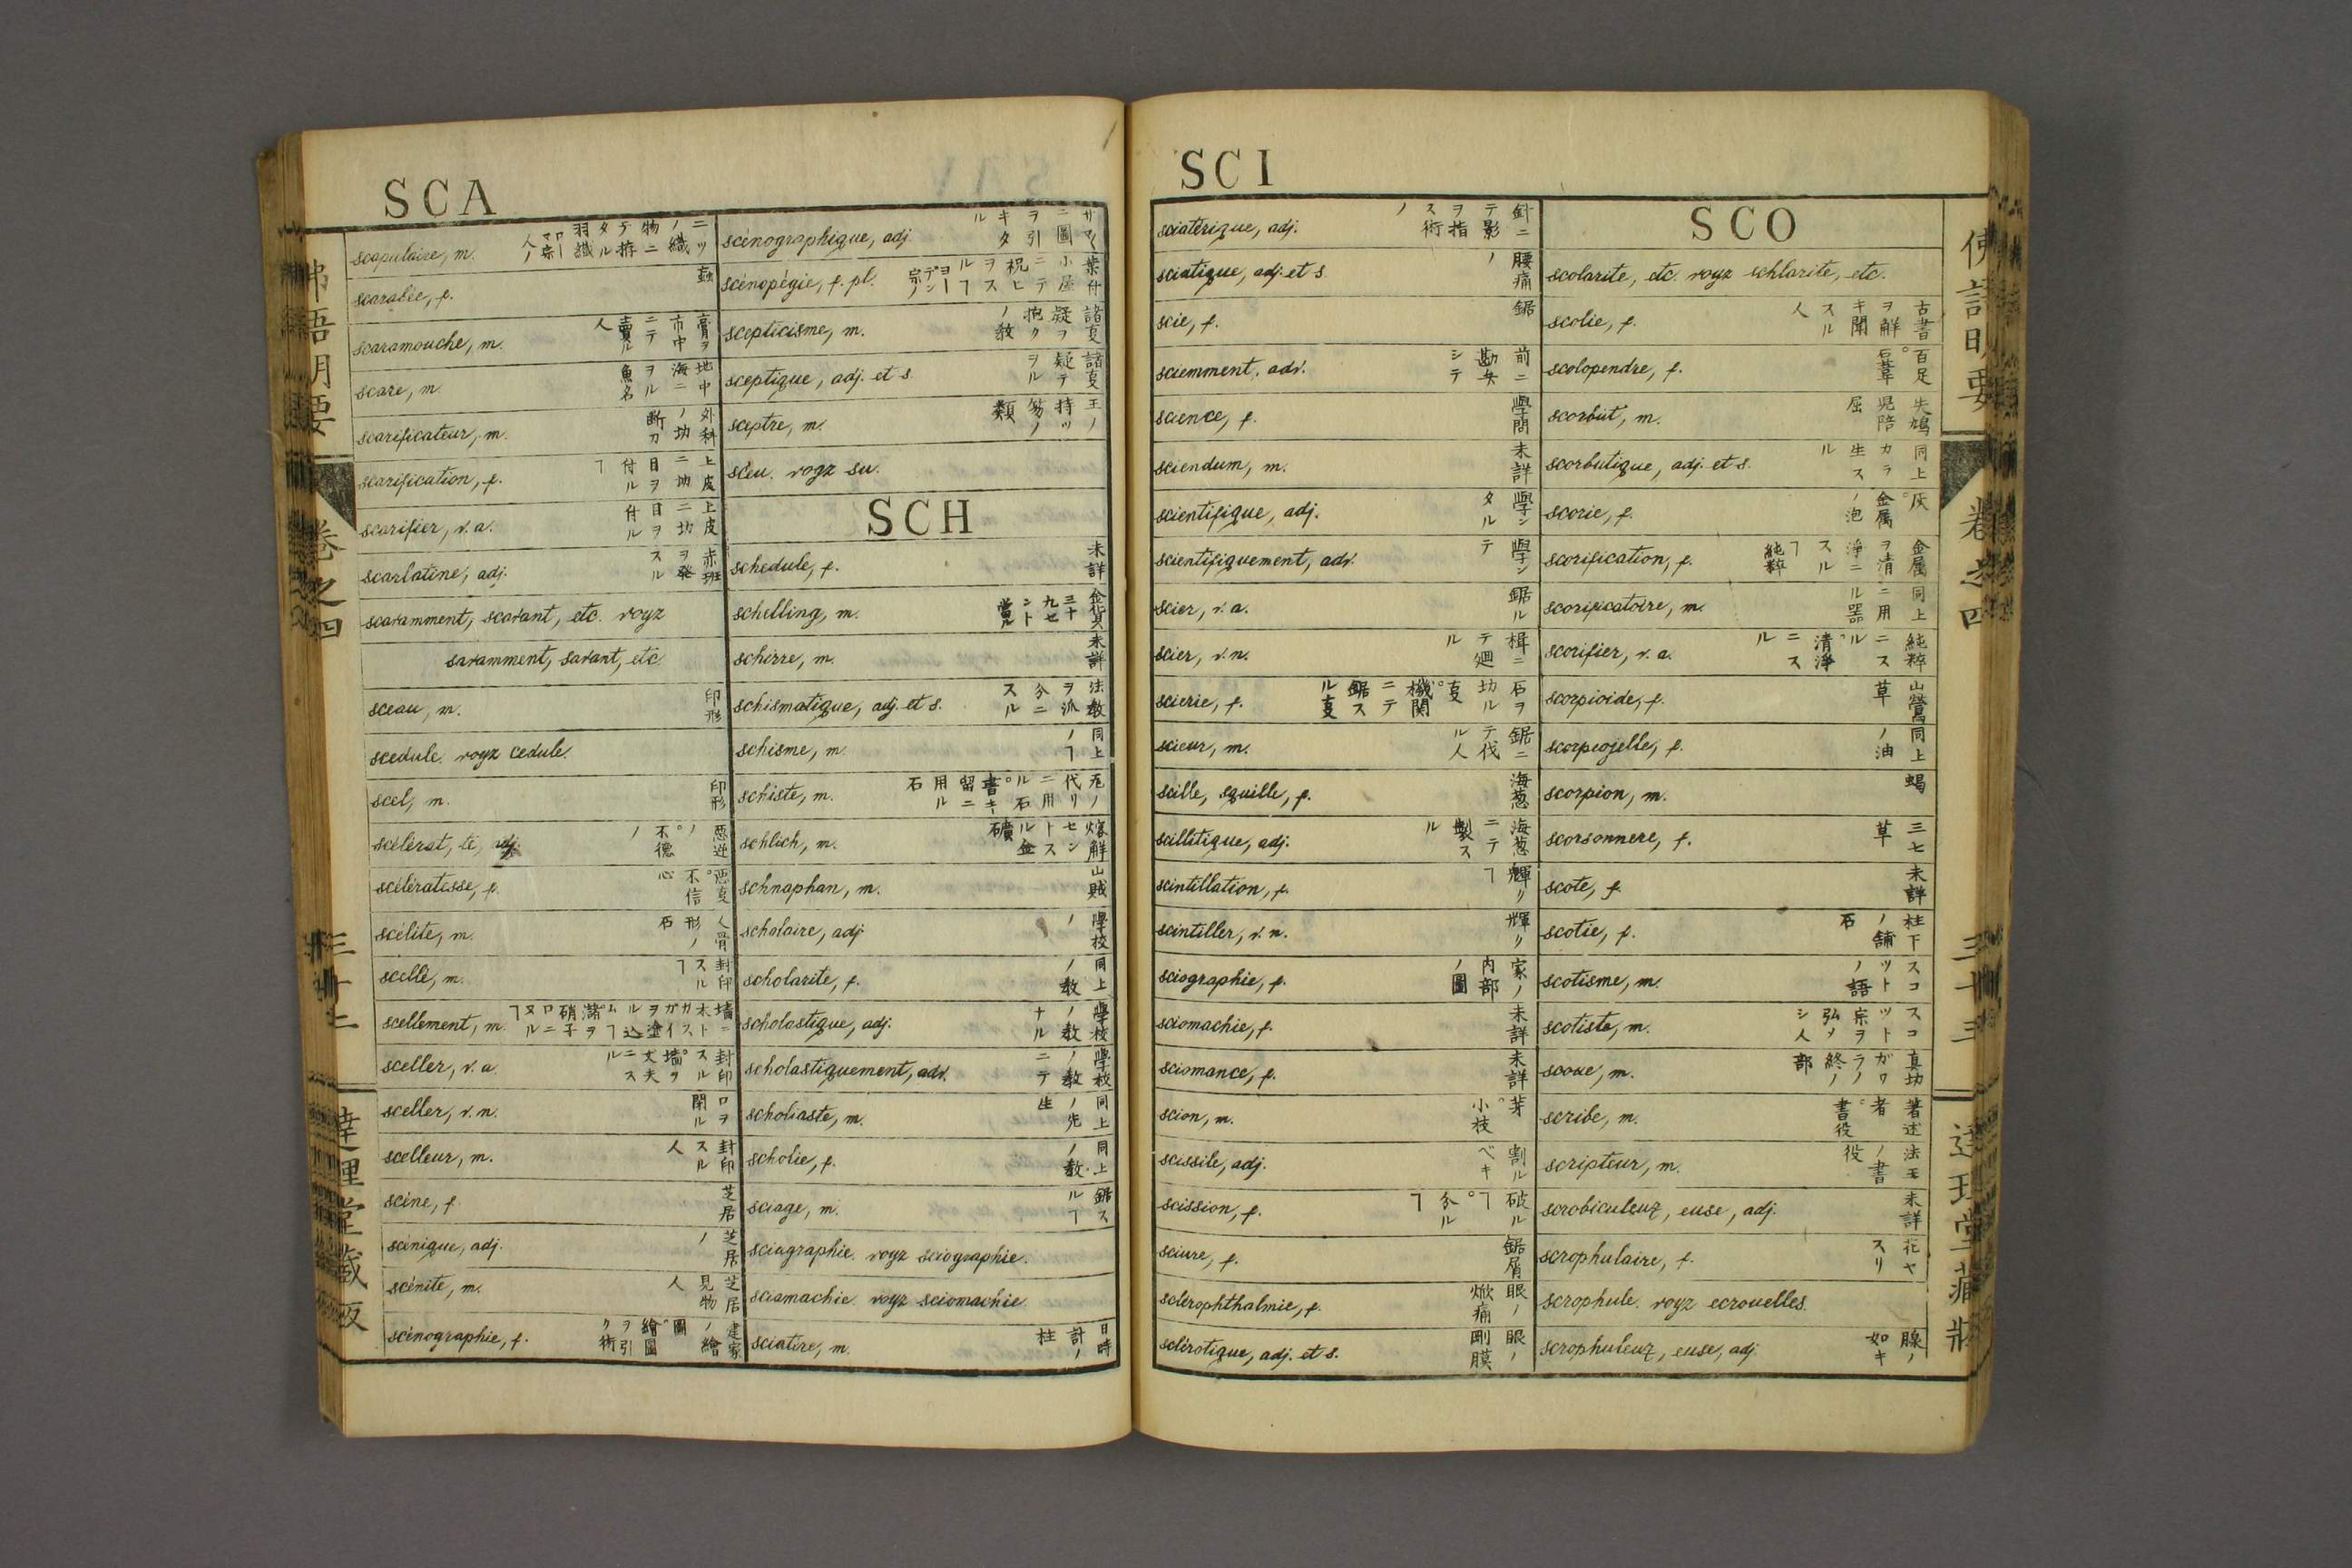 SCA
scapulaire, m.
scarabée, f. 蟲
scaramouche, m. 膏ヲ市中ニテ賣ル人
scare, m. 地中海ニヲル魚名
scarificateur, m. 外科ノ切斷刀
scarification, f. 上皮ニ切目ヲ付ルヿ
scarifier, v. a. 上皮ニ切目ヲ付ル
scarlatine, adj. 赤班ヲ發スル
scavamment, scavant, etc. voyz
savamment, savant, etc.
sceau, m. 印形
scedule. voyz cedule.
scel, m. 印形
scélérat, te, adj. 悪逆ノ。不徳ノ
scélératesse, f. 悪叓。不信心
scélite, m. 人骨形ノ石
scellé, m. 封印スルヿ
scellement, m.
sceller, v. a. 封印スル。墻ヲ丈夫ニスル
sceller, v. n. 口ヲ閉ル
scelleur, m. 封印スル人
scène, f. 芝居
scénique, adj. 芝居ノ
scénite, m. 芝居見物人
scénographie, f. 建家ノ繪圖。繪圖ヲ引ク術
scénographique, adj.
scénopégie, f. pl.
scepticisme, m. 諸叓疑ヲ抱クノ教
sceptique, adj. et s. 諸叓疑テヲル
sceptre, m. 王ノ持ツ笏ノ類
sceu. voyz su.
SCH
schedule, f. 未詳
schelling, m.
schirre, m. 未詳
schismatique, adj. et s. 法教ヲ派分ニスル
schisme, m. 同上ノヿ
schiste, m. 瓦ノ代リニ用ル石。書キ留ニ用ル石
schlich, m. 熔解センスル金礦
schnaphan, m. 山賊
scholaire, adj. 學校ノ
scholarite, f. 同上ノ教
scholastique, adj. 學校ノ教ナル
scholastiquement, adv. 學校ノ教ニテ
scholiaste, m. 同上ノ先生
scholie, f. 同上ノ教
sciage, m. 鋸スルヿ
sciagraphie. voyz sciographie.
sciamachie. voyz sciomachie
sciatère, m. 日時計ノ柱
SCI
sciatérique, adj. 針ニテ影ヲ指スノ術
sciatique, adj. et s. 腰痛ノ
scie, f. 鋸
sciemment, adv. 前ニ勘弁シテ
science, f. 學問
sciendum, m. 未詳
scientifique, adj. 學ンタル
scientifiquement, adv. 學ンテ
scier, v. a. 鋸ル
scier, v. n. 楫ニテ廻ル
scierie, f. 石ヲ切ル叓。機関ニテ鋸スル叓
scieur, m. 鋸ニテ伐ル人
scille, squille, f. 海葱
scillitique, adj. 海葱ニテ製スル
scintillation, f. 輝リヿ
scintiller, v. n. 輝リ
sciographie, f. 家ノ内部ノ圖
sciomachie, f. 未詳
sciomance, f. 未詳
scion, m. 芽。小枝
scissile, adj. 割ルベキ
scission, f. 破ルヿ。分ルヿ
sciure, f. 鋸屑
sclérophthalmie, f. 眼ノ焮痛
sclérotique, adj. et s. 眼ノ剛膜
SCO
scolarite, etc. voyz schlarite, etc.
scolie, f. 古書ヲ解キ聞スル人
scolopendre, f. 百足。石葦
scorbut, m.
scorbutique, adj. et s. 同上カラ生スル
scorie, f. 灰。金属ノ泡
scorification, f. 金属ヲ清浄ニスルヿ 純粹
scorificatoire, m. 同上ニ用ル器
scorifier, v. a. 純粹ニスル。清浄ニスル
scorpioide, f. 山鶯草
scorpiojelle, f. 同上ノ油
scorpion, m. 蝎
scorsonnere, f. 三七草
scote, f. 未詳
scotie, f. 柱下ノ舗石
scotisme, m. スコツトノ語
scotiste, m. スコツト宗ヲ弘メシ人
scoue, m.
scribe, m. 著述者。書役
scripteur, m. 法王ノ書役
scrobiculeux, euse, adj. 未詳
scrophulaire, f.
scrophule. voyz ecrouelles.
scrophuleux, euse, adj. 腺ノ如キ
佛語明要
卷之四
三十三
達理堂藏版